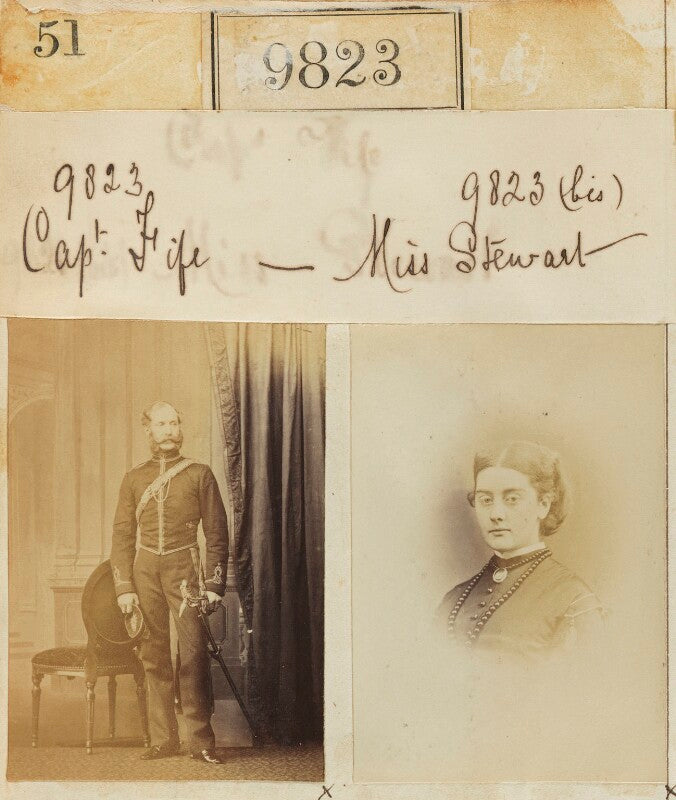 51
9823
9823 9823 (bis)
Capt. Fife — Miss Stewart
x x